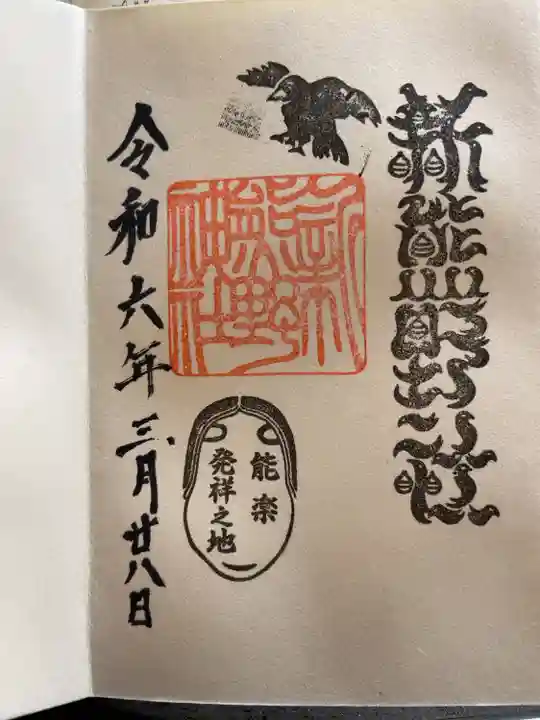 新熊野
新
熊野
神社
能楽
発祥之地
令和六年三月廿八日